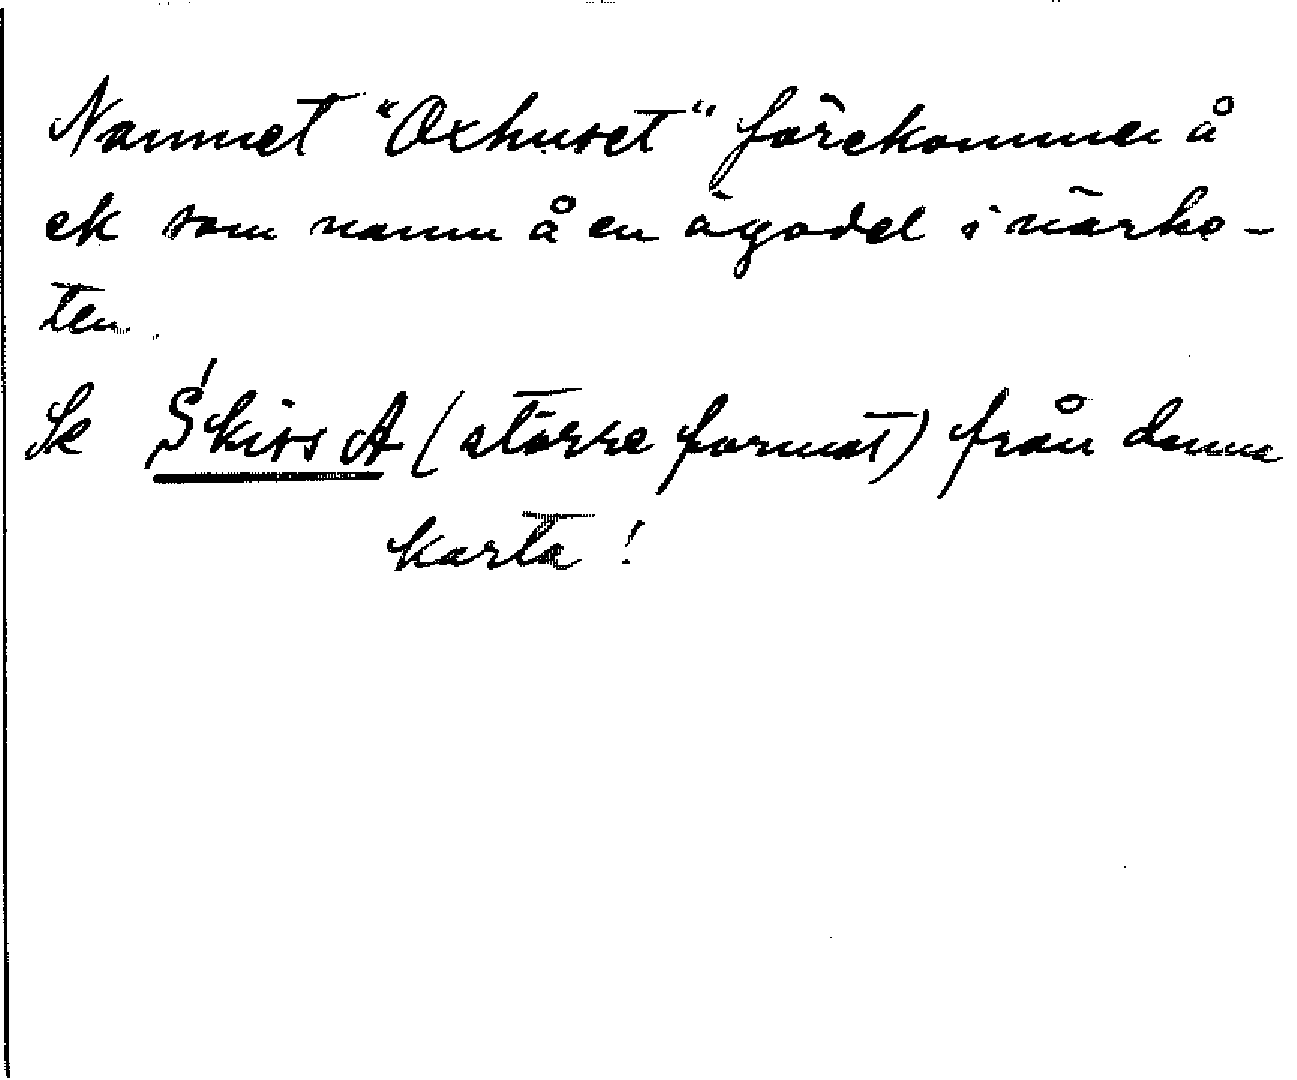 Namnet "Oxhuset" förekommer å
ek som namn å en ägodel i närhe-
ten.
Se Skiss A (större format) från denna
karta!